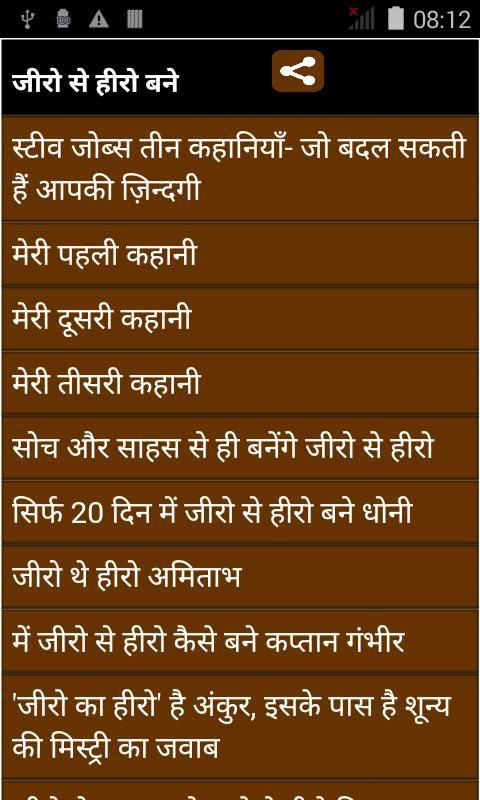 08:12
जीरो से हीरो बने
स्टीव जोब्स तीन कहानियाँ- जो बदल सकती
हैं आपकी ज़िन्दगी
मेरी पहली कहानी
मेरी दूसरी कहानी
मेरी तीसरी कहानी
सोच और साहस से ही बनेंगे जीरो से हीरो
सिर्फ 20 दिन में जीरो से हीरो बने धोनी
जीरो थे हीरो अमिताभ
में जीरो से हीरो कैसे बने कप्तान गंभीर
'जीरो का हीरो' है अंकुर, इसके पास है शून्य
की मिस्ट्री का जवाब